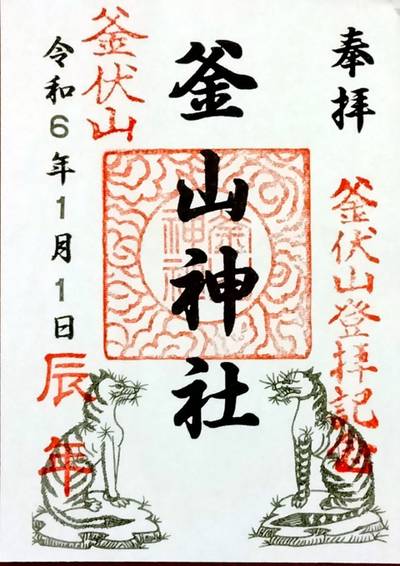 奉拝
釜伏山登拝記念
釜山神社
釜伏山
令和6年1月1日
辰年